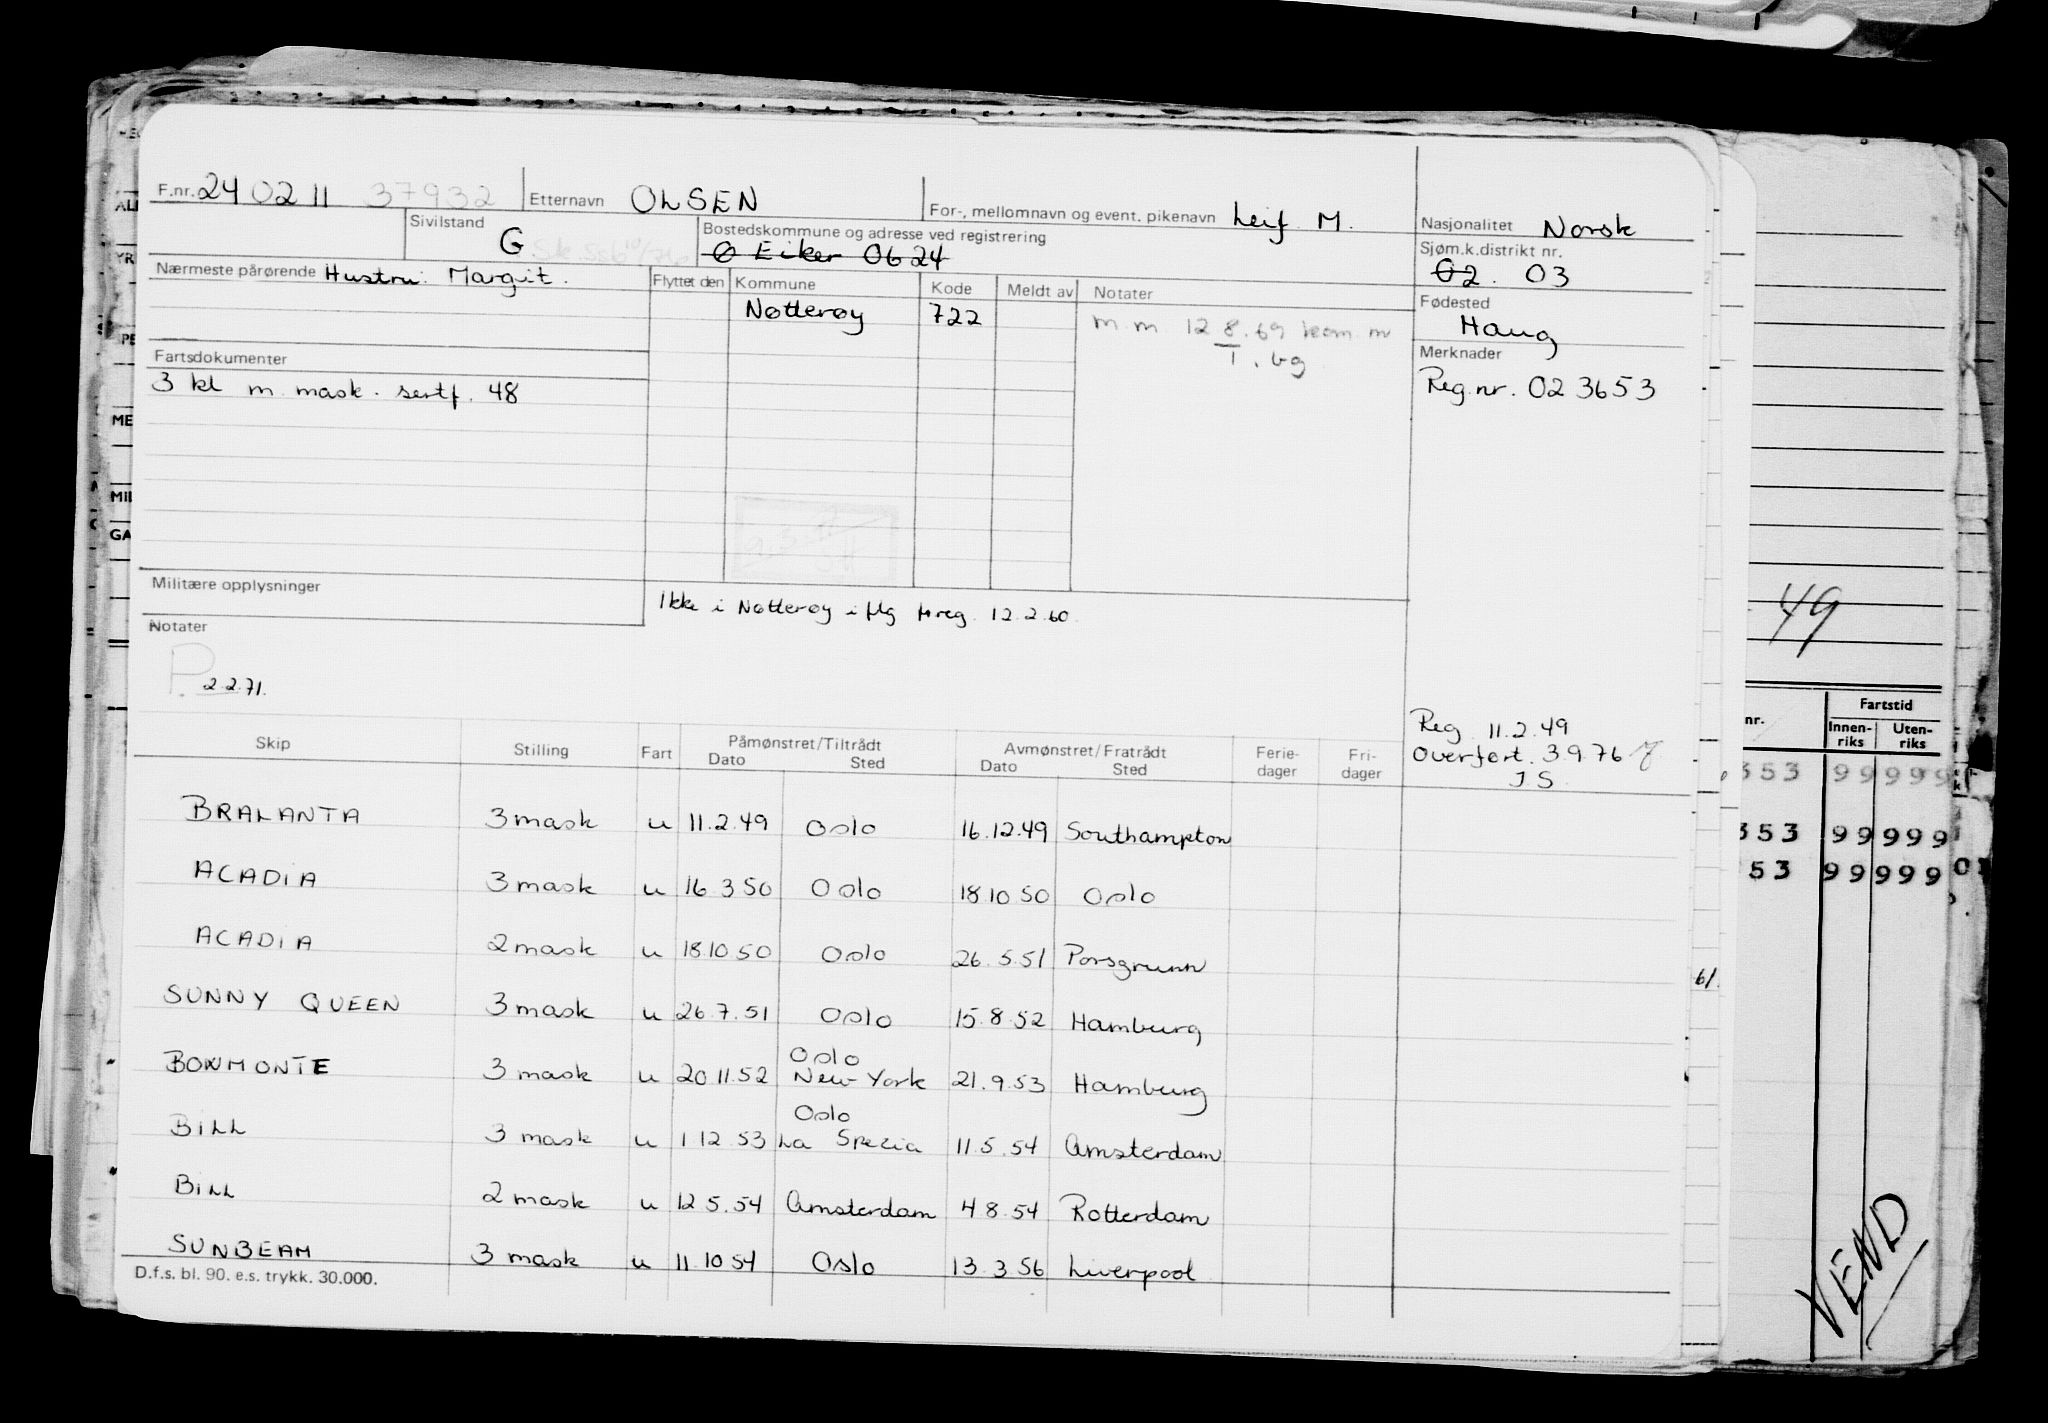 F.nr. 24 02 11 37932 Etternavn OLSEN For-, mellomnavn og event. pikenavn Leif M. Nasjonalitet Norsk
Sivilstand G Bostedskommune og adresse ved registrering Ø Eiker 0624 Sjøm.k.distrikt nr. 02. 03
Nærmeste pårørende Hustru: Margit. Flyttet den Kommune Kode Meldt av Notater Fødested
Nøtterøy 722 m.m. 12 8.69 Haug
Fartsdokumenter Merknader
3 kl m. mask. sertf. 48 Reg.nr. 02 3653
Militære opplysninger
Ikke i Nøtterøy i flg. 12.2.60.
Notater
P. 2.2.71.
Reg. 11.2.49
Overført. 3.9.76
J.S.
Skip Stilling Fart Påmønstret/Tiltrådt Avmønstret/Fratrådt Ferie- Fri-
Dato Sted Dato Sted dager dager
BRALANTA 3 mask u 11.2.49 Oslo 16.12.49 Southampton
ACADIA 3 mask u 16.3 50 Oslo 18 10 50 Oslo
ACADIA 2 mask u 18.10 50 Oslo 26.5.51 Porsgrunn
SUNNY QUEEN 3 mask u 26.7.51 Oslo 15.8.52 Hamburg
Oslo
BONMONTE 3 mask u 20 11.52 New York 21.9.53 Hamburg
Oslo
BILL 3 mask u 1 12.53 La Spezia 11.5.54 Amsterdam
BILL 2 mask u 12 5.54 Amsterdam 4 8.54 Rotterdam
SUNBEAM 3 mask u 11.10 54 Oslo 13.3.56 Liverpool
D.f.s. bl. 90. e.s. trykk. 30.000.
ME
MIL
GA
49
nr. Fartstid
Innen- Uten-
riks riks
353 99 999
353 99 999
53 99 999
61.
VEND